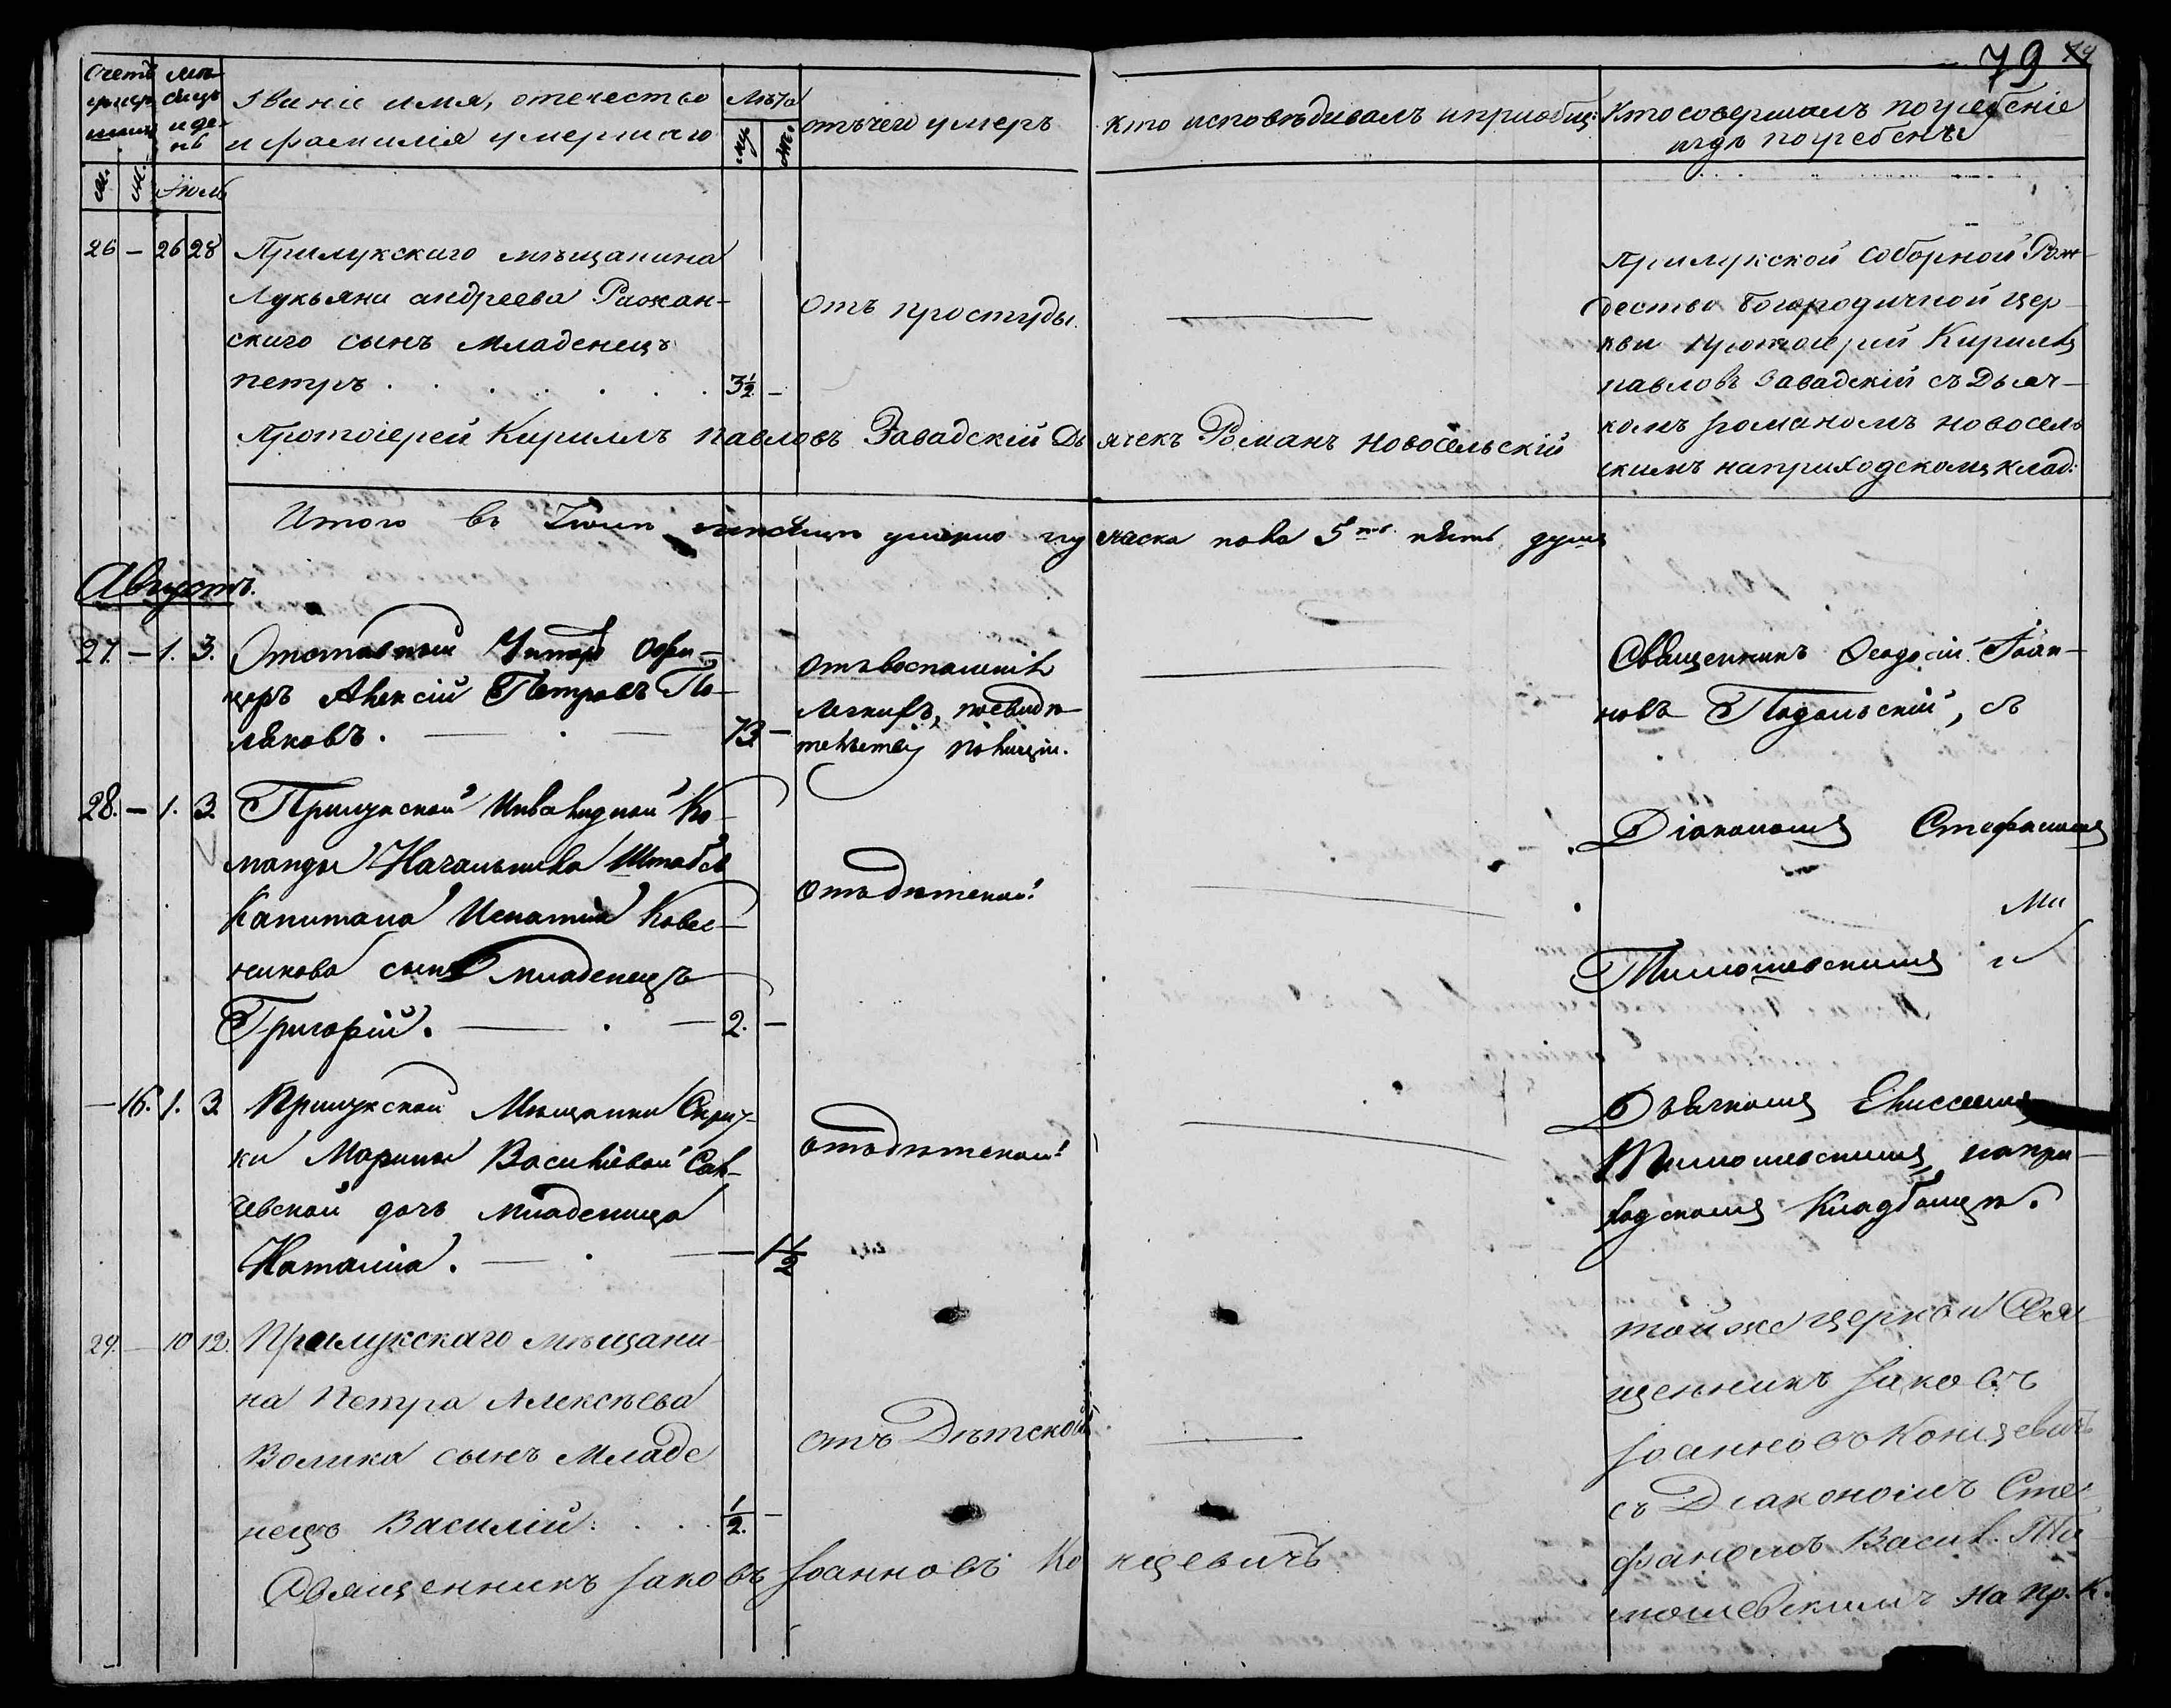 79
Счетъ умер
шихъ
Мѣ-
сяцъ
и де-
нь
Званіе имя, отечество
и фамилія умершаго
Лѣта
му.
же.
отъ чего умеръ
Кто исповѣдивалъ и приобщ:
Кто совершалъ погребеніе
и гдѣ погребенъ
м. ж. Іюль
26 – 26 28 Прилукскаго мѣщанина
Лукьяна андреева Рожан-
скаго сынъ младенецъ
петръ . . . . . . 3½ –
отъ простуды.
Прилукской соборной Рож-
дество богородичной цер-
кви протоіерей Кириллъ
павловъ Завадскій съ Дьяч-
комъ романомъ новосель
скимъ наприходскомъ клад:
Протоіерей Кириллъ павловъ Завадскій Дьячекъ Романъ Новосельскій
Итого въ Іюлѣ мѣсяцѣ умерло мужеска пола 5ть пять душъ
Августъ.
27. – 1. 3. Отставный Унтеръ Офи-
церъ Алексій Петровъ По-
ляковъ. 73 –
отъ воспаленія
легкихъ, по свидѣ-
тельству полиціи.
Священникъ Ѳеодосій Іоан-
новъ Подольскій, съ
28. – 1. 3. Прилукской Инвалидной Ко-
манды Начальника Штабсъ
Капитана Игнатія Колес-
никова сынъ младенецъ
Григорій. 2. –
отъ дѣтской.
Діакономъ Стефаномъ
Ми
Тимошевскимъ и
– 16. 1. 3. Прилукской Мѣщанки
ки Марины Василіевой Сав-
чевской дочь младеница
Наталія. – 1½
отъ дѣтской.
Дьячкомъ Елиссеемъ
Тимошевскимъ, напри-
ходскомъ Кладбищѣ.
29. – 10 12. Прилукскаго мѣщани-
на Петра Алексѣева
Волика сынъ Младе
нецъ Василій. . . . ½. –
отъ Дѣтской
той же церкви Свя-
щенникъ Іаковъ
Іоанновъ Концевичъ
съ Діакономъ Сте-
фаномъ Васил. Ти
мошевскимъ на пр. К.
Священникъ Іаковъ Іоанновъ Концевичъ